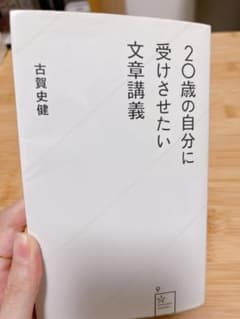 ２０歳の自分に
受けさせたい
文章講義
古賀史健
9